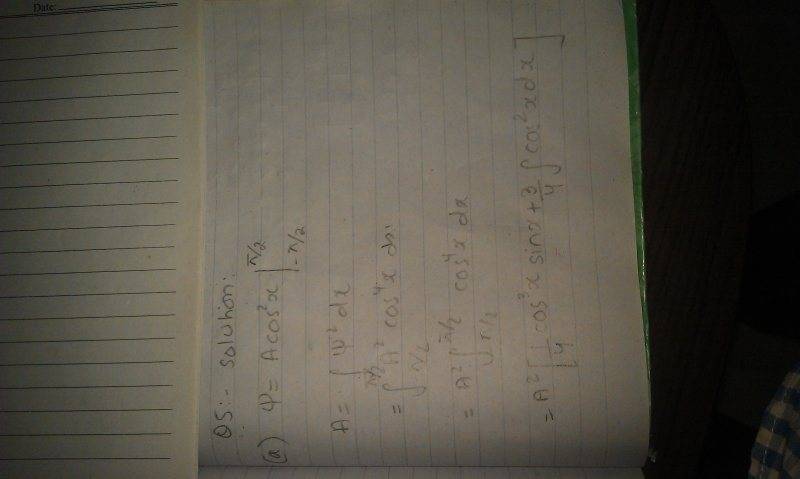 Date:
Q5:- solution:
(a) Ψ = A cos²x |^π/2 _-π/2
A = ∫ Ψ² dx
= ∫^π/2 _π/2 A² cos⁴x dx
= A² ∫^π/2 _π/2 cos⁴x dx
= A² [ 1/4 cos³x sinx + 3/4 ∫ cos²x dx ]